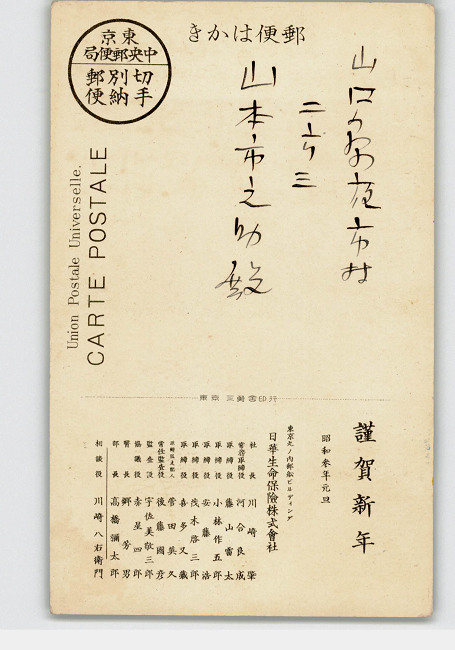 郵便はかき
東京
中央郵便局
切手
別納
郵便
Union Postale Universelle.
CARTE POSTALE
山口
二ノ三
山本市之助殿
東京
印行
謹賀新年
昭和参年元旦
東京丸ノ内郵船ビルディング
日華生命保険株式會社
社長 川崎肇
常務取締役 河合良成
取締役 藤山雷太
取締役 小林作五郎
取締役 安藤浩
取締役 茂木啓三郎
取締役 喜多又蔵
菅田英久
常任監査役 後藤國彦
監査役 宇佐美敬三郎
協議役 赤星四郎
醫長 郷芳男
部長 高橋彌太郎
相談役 川崎八右衛門